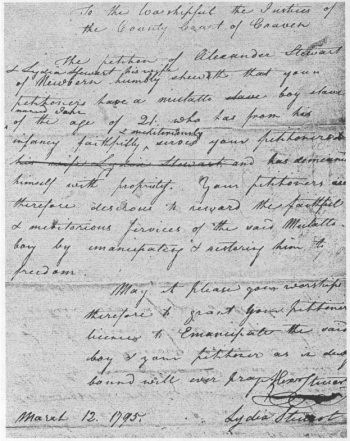 To the Worshipful the Justices of
the County Court of Craven
The petition of Alexander Stewart
& Lydia Stewart his wife
of Newbern humbly sheweth that your
petitioners have a mulatto slave boy slave
named
of the age of 21. who has from his
& meritoriously
infancy faithfully served your petitioners
his wife Lydia Stewart and has demeaned
himself with propriety. Your petitioners are
therefore desirous to reward the faithful
& meritorious services of the said Mulatto
boy by emancipating & restoring him to
freedom.
May it please your worships
therefore to grant your petitioners
license to Emancipate the said
boy & your petitioner as in duty
bound will ever pray Alexr Stewart
March 12. 1795.
Lydia Stewart